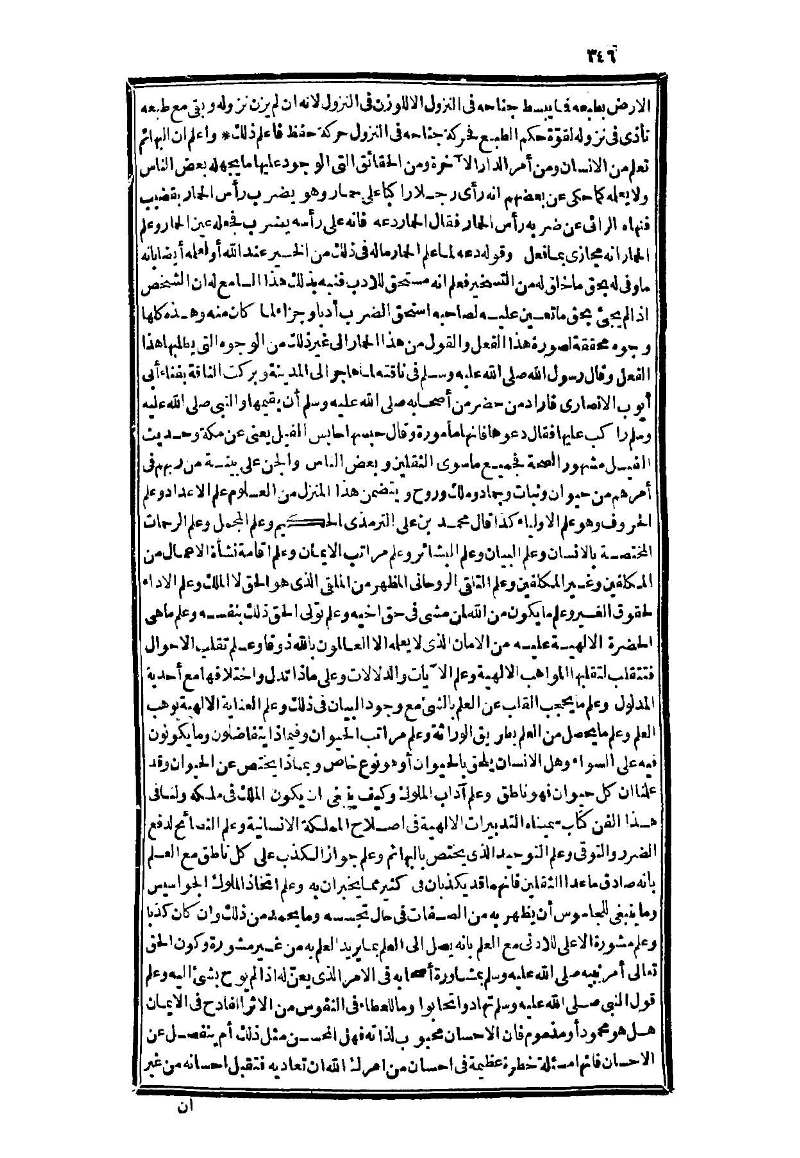 ٣٤٦
الارض بطبعه فما يبسط جناحه فى النزول الا للوزن فى النزول لانه ان لم يزن نزوله وبقى مع طبعه
تأذى فى نزوله لقوة حكم الطبع فحركة جناحه فى النزول حركة حفظ فاعلم ذلك * واعلم ان البهائم
تعلم من الانسان ومن أمر الدار الآخرة ومن الحقائق التى الوجود عليها ما يجهله بعض الناس
ولا يعلمه كما حكى عن بعضهم انه رأى رجلا راكبا على حمار وهو يضرب رأس الحمار بقضيب
فنهاه الرائى عن ضربه رأس الحمار فقال الحمار دعه فانه على رأسه يضرب فجعله عين الحمار وعلم
الحمار انه مجازى بما فعل وقوله دعه لما علم الحمار ماله فى ذلك من الخير عند الله أو لعلمه أيضا بانه
ما وفى له بحق ما خلق له من التسخير فعلم انه مستحق للادب فنبه بذلك هذا السامع له ان الشخص
اذا لم يجئ بحق ما تعين عليه لصاحبه استحق الضرب أدبا وجزاء لما كان منه وهذه كلها
وجوه محققة لصورة هذا الفعل والقول من هذا الحمار الى غير ذلك من الوجوه التى يطلبها هذا
الفعل وقال رسول الله صلى الله عليه وسلم فى ناقته لما هاجر الى المدينة وبركت الناقة بفناء أبى
أيوب الانصارى فاراد من حضر من أصحابه صلى الله عليه وسلم أن يقيمها والنبى صلى الله عليه
وسلم راكب عليها فقال دعوها فانها مأمورة وقال حبسها حابس الفيل يعنى عن مكة وحديث
الفيل مشهور الصحة فجميع ما سوى الثقلين وبعض الناس والجن على بينة من ربهم فى
أمرهم من حيوان ونبات وجماد وملك وروح ويتضمن هذا المنزل من العلوم علم الاعداد وعلم
الحروف وهو علم الاولياء كذا قال محمد بن على الترمذى الحكيم وعلم المجمل وعلم الرحمات
المختصة بالانسان وعلم البيان وعلم البشائر وعلم مراتب الايمان وعلم اقامة نشأة الاعمال من
المكلفين وغير المكلفين وعلم التلقى الروحانى المظهر من الملقى الذى هو الحق لا الملك وعلم الاداء
لحقوق الغير وعلم ما يكون من الله لمن مشى فى حق اخيه وعلم تولى الحق ذلك بنفسه وعلم ماهى
الحضرة الالهية عليه من الامان الذى لا يعلمه الا العالمون بالله ذوقا وعلم تقلب الاحوال
فتتقلب لتقلبها المواهب الالهية وعلم الآيات والدلالات وعلى ماذا تدل واختلافها مع أحدية
المدلول وعلم ما يحجب القلب عن العلم بالشئ مع وجود البيان فى ذلك وعلم العناية الالهية بوهب
العلم وعلم ما يحصل من العلم بطريق الوراثة وعلم مراتب الحيوان وفيماذا يتفاضلون وما يكونون
فيه على السواء وهل الانسان يلحق بالحيوان أو هو نوع خاص وبماذا يختص عن الحيوان وقد
علمنا ان كل حيوان فهو ناطق وعلم آداب الملوك وكيف ينبغى ان يكون الملك فى ملكه ولنا فى
هذا الفن كتاب سميناه التدبيرات الالهية فى اصلاح المملكة الانسانية وعلم النصائح لدفع
الضرر والتوقى وعلم التوحيد الذى يختص بالبهائم وعلم جواز الكذب على كل ناطق مع العلم
بانه صادق ما عدا الثقلين فانهما قد يكذبان فى كثير مما يخبران به وعلم اتخاذ الملوك الجواسيس
وما ينبغى للجاسوس أن يظهر به من الصفات فى حال تجسسه وما يحمد من ذلك وان كان كذبا
وعلم مشورة الاعلى للادنى مع العلم بانه يصل الى العلم بما يريد العلم به من غير مشورة وكون الحق
تعالى أمر نبيه صلى الله عليه وسلم بمشاورة أصحابه فى الامر الذى يعن له اذا لم يوح بشئ اليه وعلم
قول النبى صلى الله عليه وسلم تهادوا تحابوا وما للعطاء فى النفوس من الاثر القادح فى الايمان
هل هو محمود أو مذموم فان الاحسان محبوب لذاته فهل المحسن مثل ذلك أم ينفصل عن
الاحسان فانها مسئلة خطرة عظيمة فى احسان من امرك الله ان تعاديه فتقبل احسانه من غير
ان